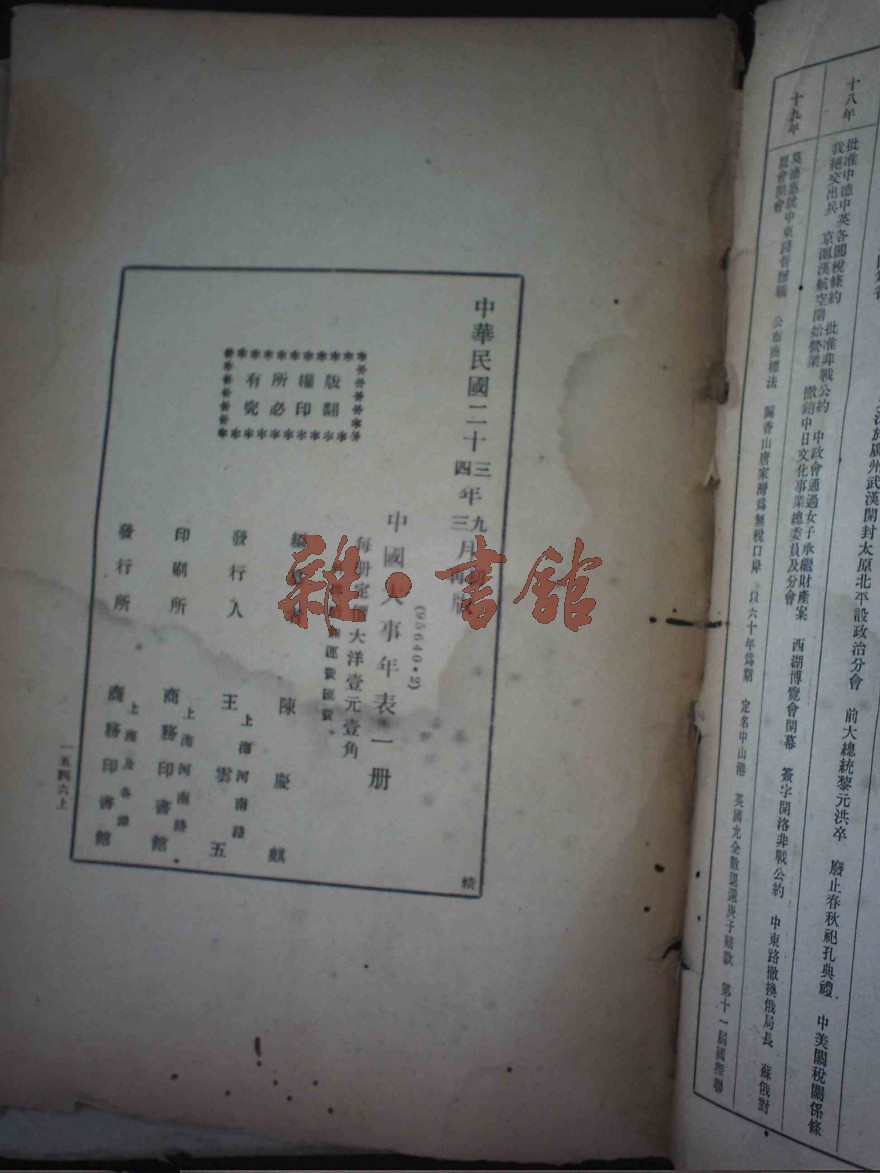 十八年
批准中德中英各關稅條約 批准非戰公約 中政會通過女子承繼財產案 西湖博覽會開幕 簽字開洛非戰公約 中東路撤換俄局長 蘇俄對
我絕交出兵 京滬漢航空開始營業 撤銷中日文化事業總委員及分會
十九年
莫德惠就中東路督辦職 公布商標法 闢香山唐家灣爲無稅口岸 以六十年爲期 定名中山港 英國允全數退還庚子賠款 第十一屆國際聯
盟會開會
廣州武漢開封太原北平設政治分會 前大總統黎元洪卒 廢止春秋祀孔典禮 中美關稅關係條
中華民國二十三年九月初版
四年三月再版
(95640·2)
中國大事年表一册
每册定價大洋壹元壹角
運費匯費
陳慶麒
發行人 王雲五
上海河南路
印刷所 商務印書館
上海河南路
發行所 商務印書館
上海及各埠
版權所有
翻印必究
一五四六上
雜·書館